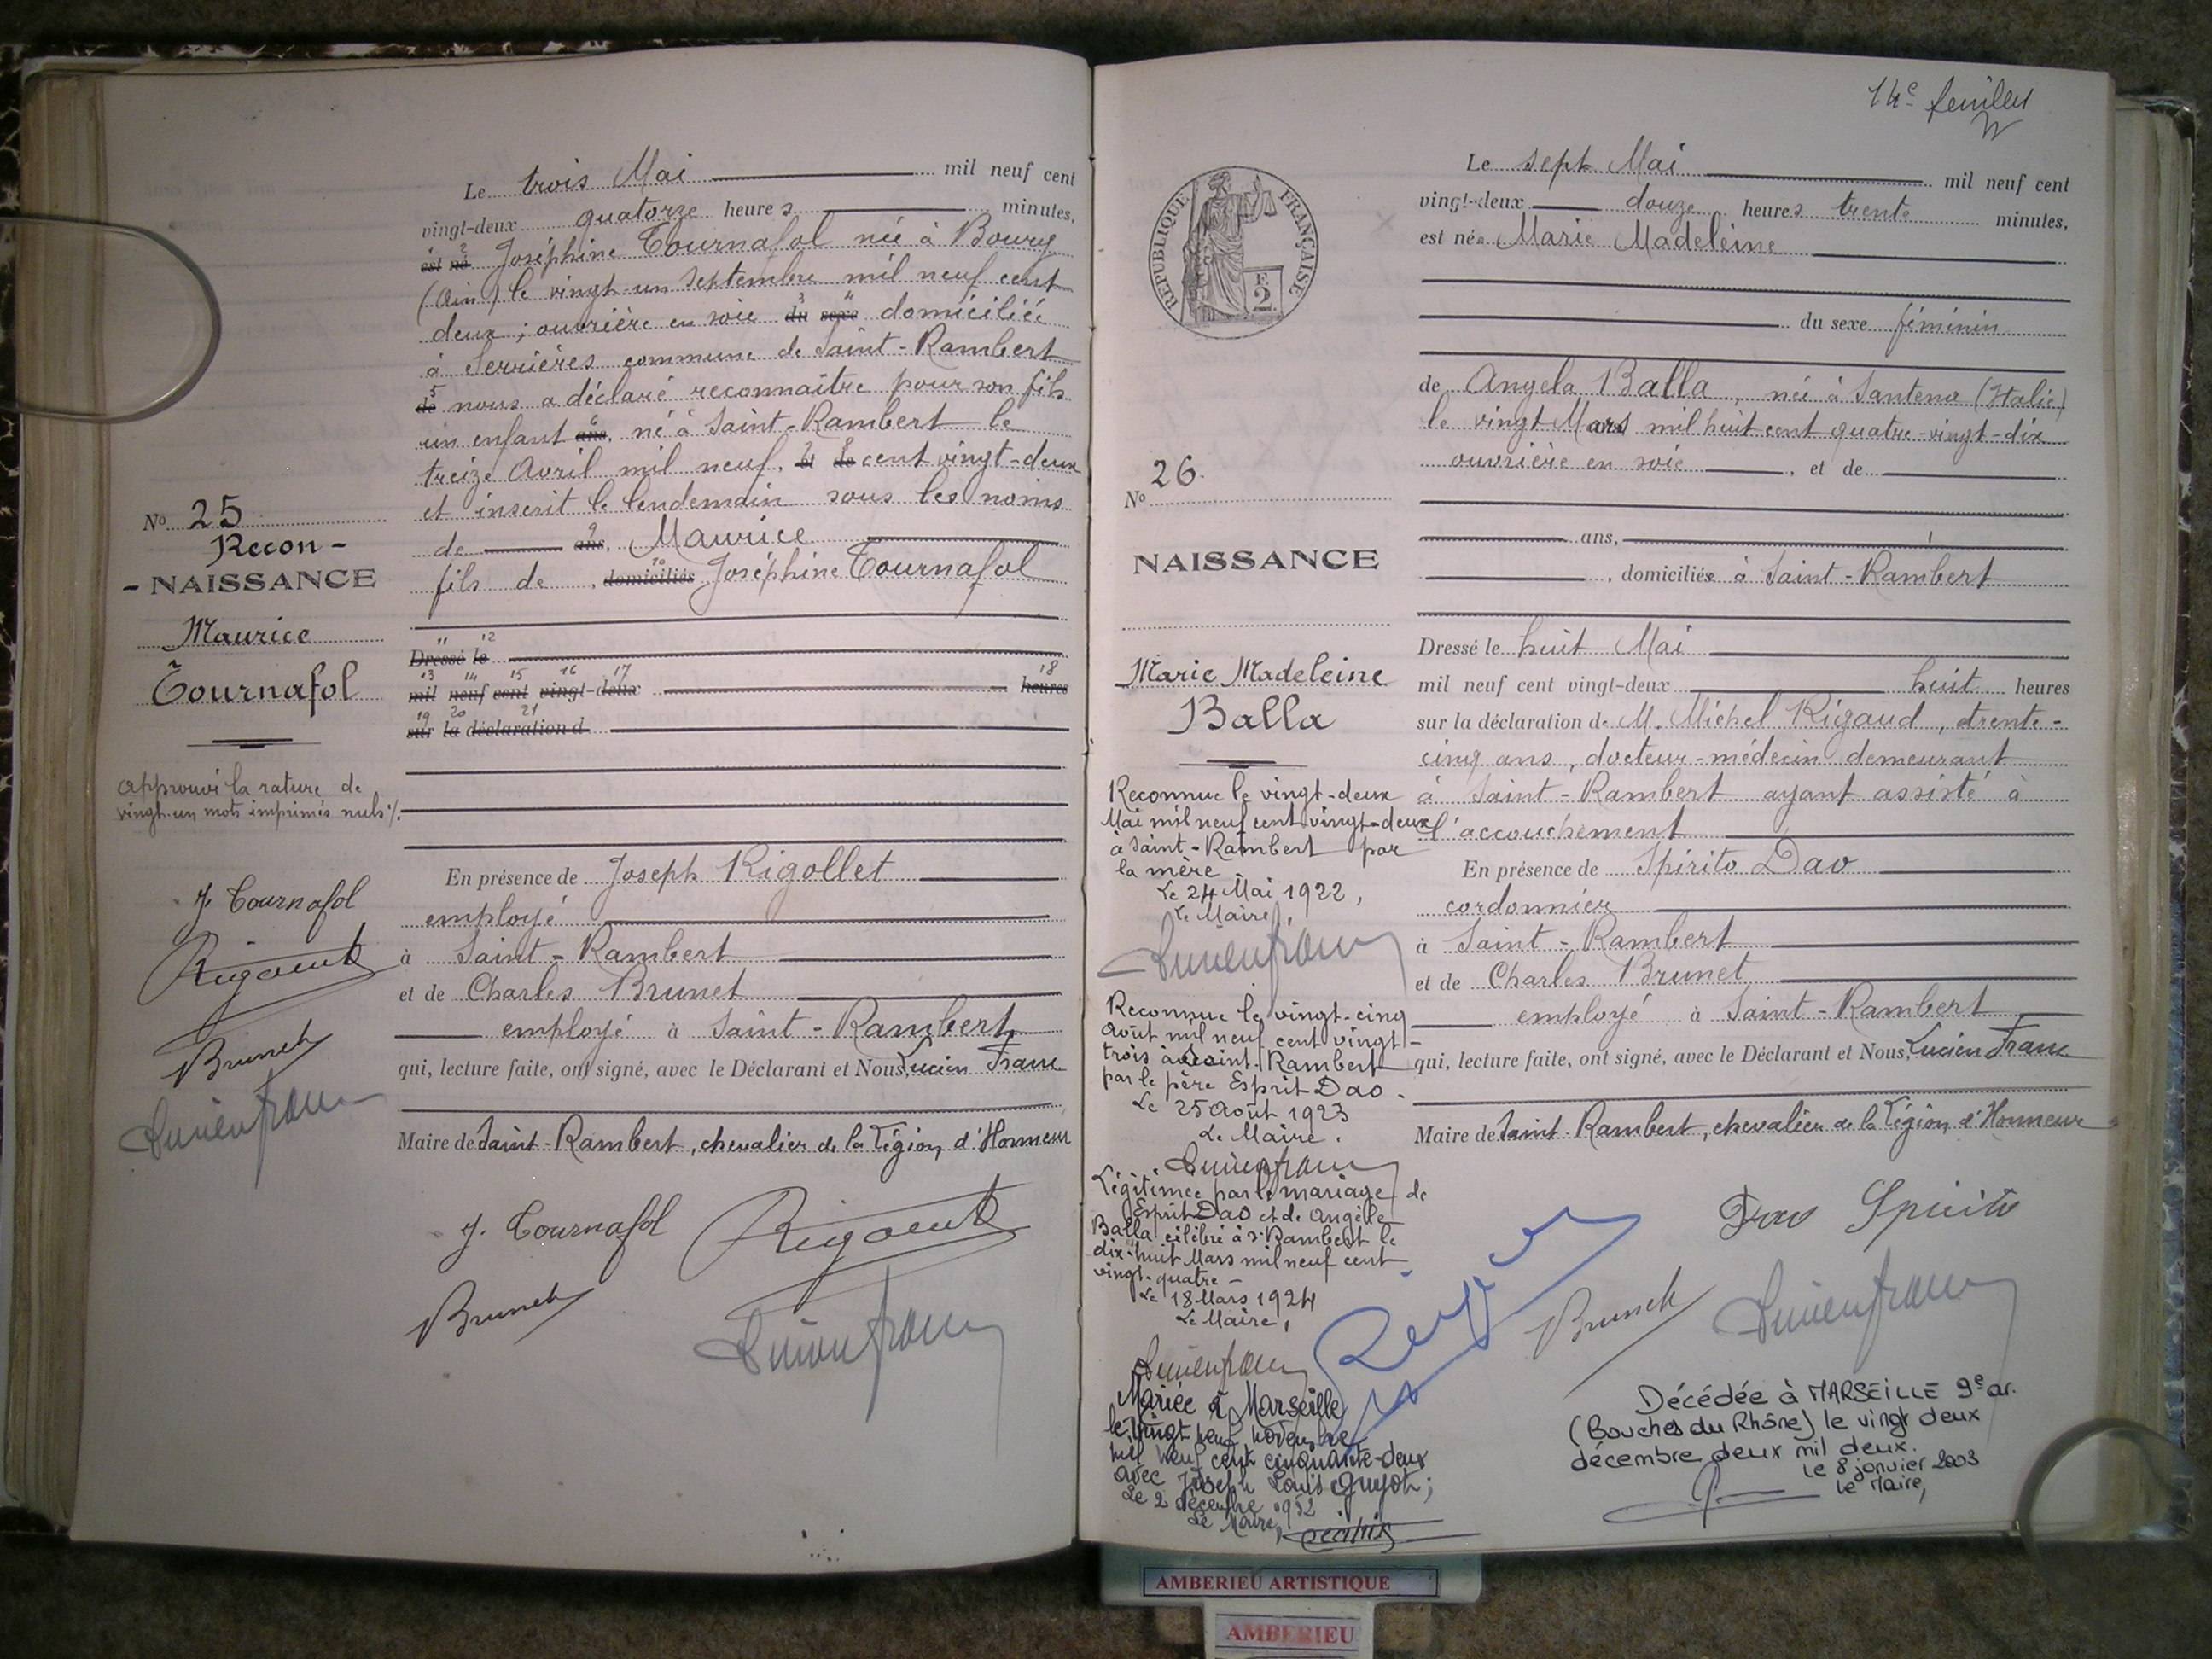 Le trois Mai mil neuf cent
vingt-deux quatorze heures minutes,
est né Joséphine Tournafol née à Bourg
(Ain) le vingt-un Septembre mil neuf cent
deux ; ouvrière en soie du sexe domiciliée
à Serrières commune de Saint-Rambert
de nous a déclaré reconnaître pour son fils
un enfant ans, né à Saint-Rambert le
treize Avril mil neuf, et de cent vingt-deux
et inscrit le lendemain sous les noms
de ans, Maurice
fils de , domiciliés Joséphine Tournafol
Dressé le
mil neuf cent vingt-deux heures
sur la déclaration d
No 25
Recon-
-NAISSANCE
Maurice
Tournafol
Approuvé la rature de
vingt-un mots imprimés nuls ./.
En présence de Joseph Rigollet
employé
à Saint-Rambert
et de Charles Brunet
employé à Saint-Rambert
qui, lecture faite, ont signé, avec le Déclarant et Nous, Lucien Franc
Maire de Saint-Rambert, chevalier de la Légion d'Honneur
J. Tournafol
Brunet
J. Tournafol
Brunet
14e feuillet
Le sept Mai mil neuf cent
vingt-deux douze heures trente minutes,
est née Marie Madeleine
du sexe féminin
de Angela Balla, née à Santena (Italie)
le vingt Mars mil huit cent quatre-vingt-dix
ouvrière en soie , et de
ans,
, domiciliée à Saint-Rambert
Dressé le huit Mai
mil neuf cent vingt-deux huit heures
sur la déclaration de M. Michel Rigaud, trente-
cinq ans, docteur-médecin demeurant
à Saint-Rambert ayant assisté à
l'accouchement
En présence de Spirito Dao
cordonnier
à Saint-Rambert
et de Charles Brunet
employé à Saint-Rambert
qui, lecture faite, ont signé, avec le Déclarant et Nous, Lucien Franc
Maire de Saint-Rambert, chevalier de la Légion d'Honneur
Dao Spirito
Brunet
RÉPUBLIQUE FRANÇAISE
F.
2
No 26.
NAISSANCE
Marie Madeleine
Balla
Reconnue le vingt-deux
Mai mil neuf cent vingt-deux
à Saint-Rambert par
la mère.
Le 24 Mai 1922,
Le Maire,
Reconnue le vingt-cinq
août mil neuf cent vingt-
trois à Saint-Rambert
par le père Esprit Dao.
Le 25 août 1923
Le Maire.
Légitimée par le mariage de
Esprit Dao et de Angèle
Balla célébré à St Rambert le
dix-huit Mars mil neuf cent
vingt-quatre -
Le 18 Mars 1924
Le Maire,
Mariée à Marseille
le vingt neuf novembre
mil neuf cent cinquante-deux
avec Joseph Louis Guyot ;
Le 2 décembre 1952
Le Maire,
Décédée à MARSEILLE 9e ar.
(Bouches du Rhône) le vingt deux
décembre deux mil deux.
le 8 janvier 2003
le Maire,
AMBERIEU ARTISTIQUE
AMBERIEU